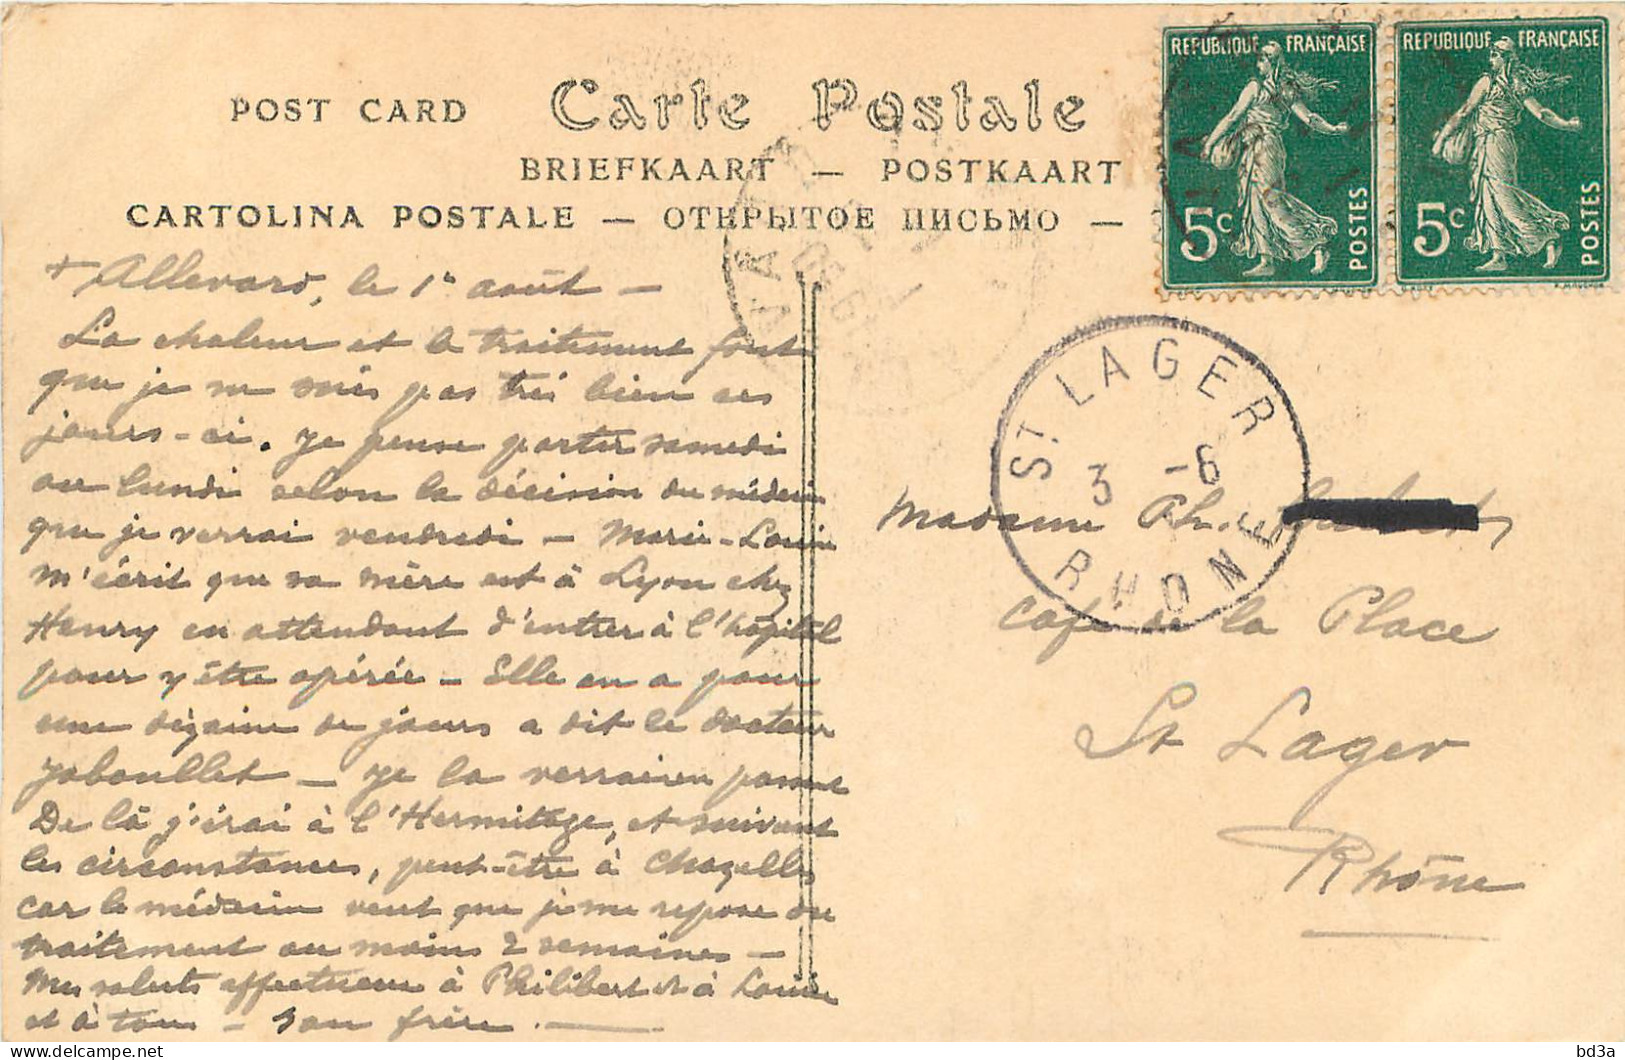 POST CARD Carte Postale
BRIEFKAART — POSTKAART
CARTOLINA POSTALE — ОТКРЫТОЕ ПИСЬМО —
REPUBLIQUE FRANÇAISE
5c POSTES
REPUBLIQUE FRANÇAISE
5c POSTES
+ Allevard, le 1er août —
La chaleur et le traitement font
que je ne suis pas très bien ces
jours-ci. Je pense partir samedi
ou lundi selon la décision du médecin
que je verrai vendredi — Marie-Louise
m'écrit que sa mère est à Lyon chez
Henry en attendant d'entrer à l'hôpital
pour y être opérée — Elle en a pour
une dizaine de jours a dit le docteur
Jaboullet — Je la verrai en passant
De là j'irai à l'Hermitage, et suivant
les circonstances, peut-être à Chazelles
car le médecin veut que je me repose du
traitement au moins 2 semaines —
Mes saluts affectueux à Philibert et à Louise
et à tous — Ton frère. —
ST LAGER
3 -6
RHONE
Madame Ph.
Café de la Place
St Lager
Rhône
bd3a